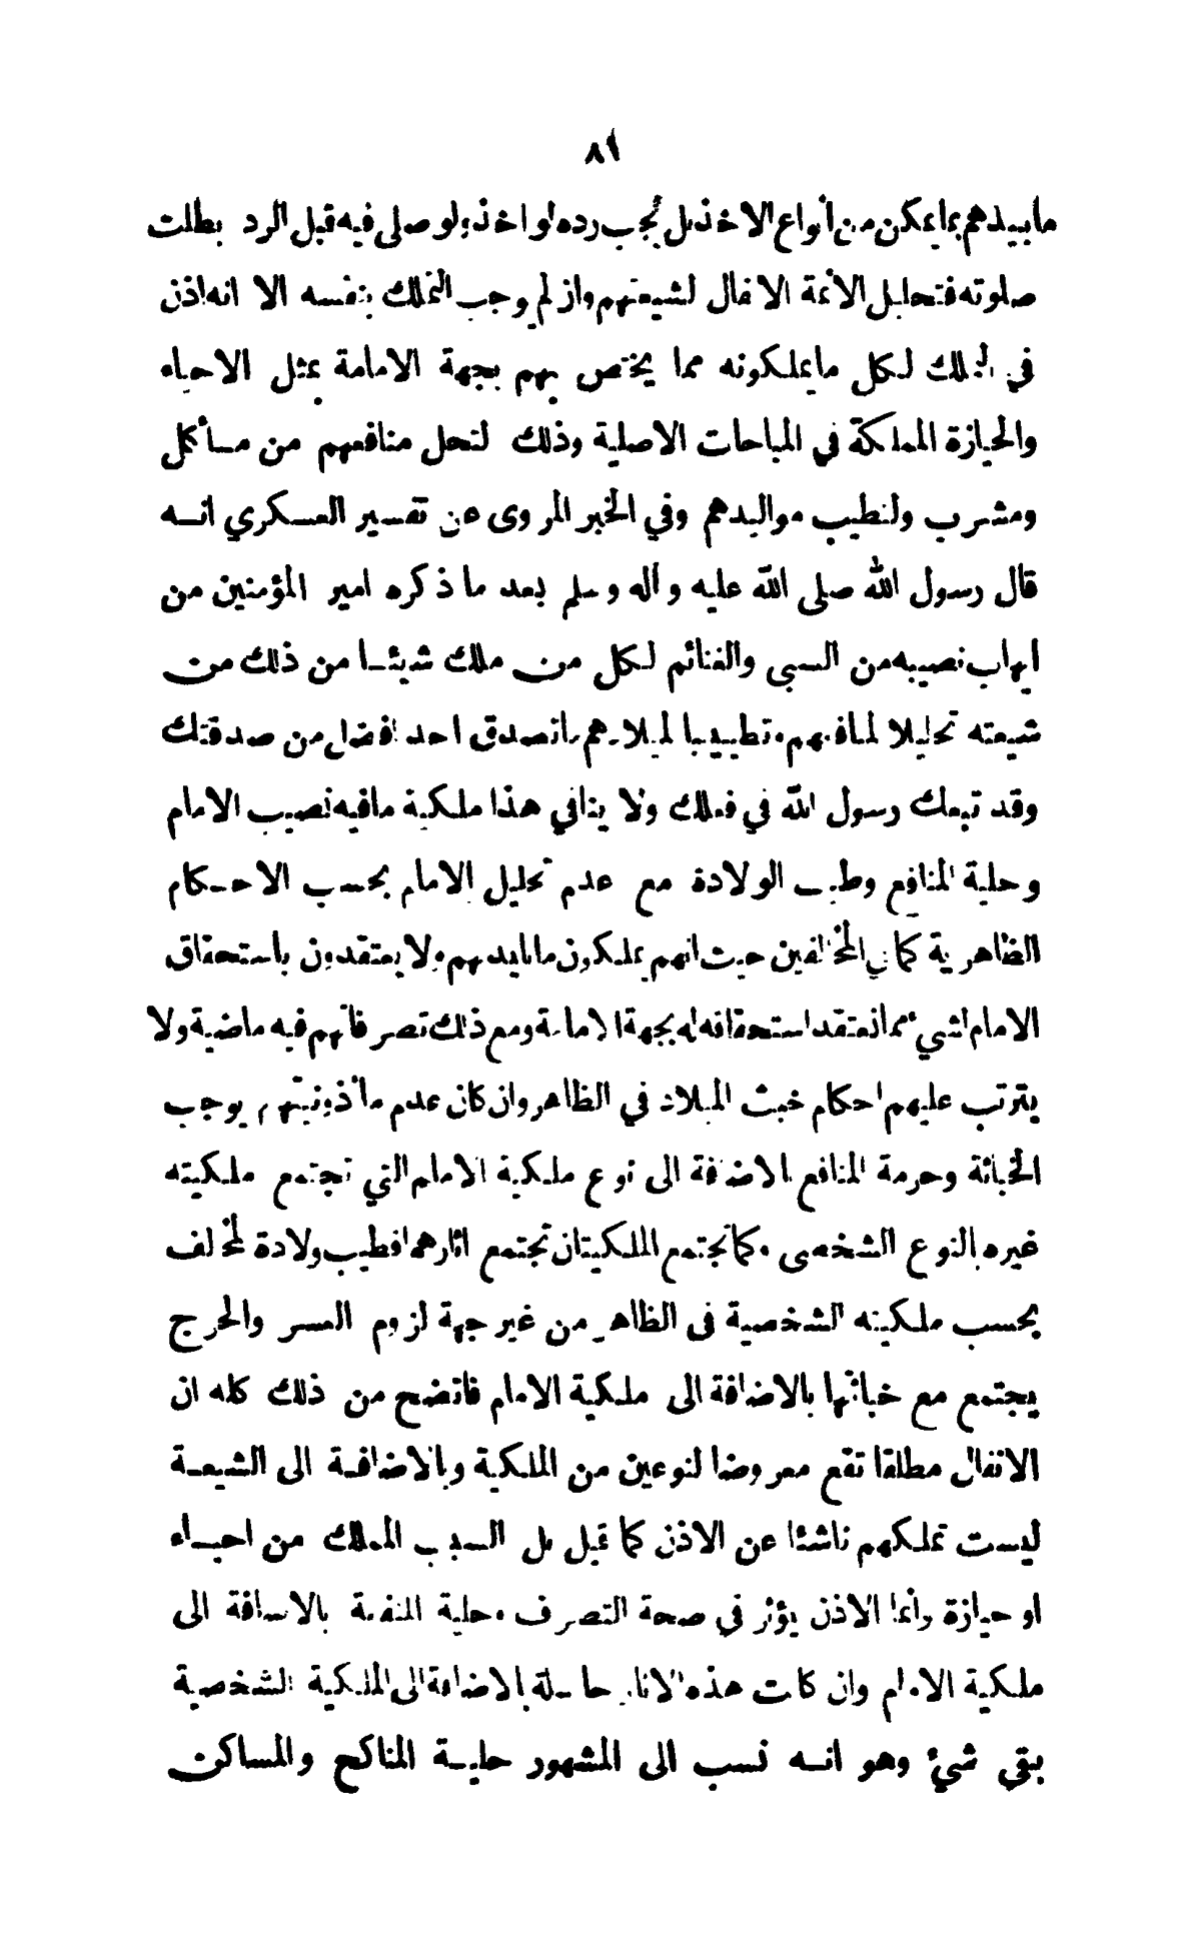 ٨٩
مابيدهم بما يمكن من أنواع الاخذ بل يجب رده لو اخذ ولو صلى فيه قبل الرد بطلت
صلوته فتحليل الأئمة الانفال لشيعتهم وان لم يوجب التملك بنفسه الا انه اذن
في التملك لكل ما يملكونه مما يختص بهم بجهة الامامة بمثل الاحياء
والحيازة المملكة في المباحات الاصلية وذلك لتحل منافعهم من مأكل
ومشرب ولتطيب مواليدهم وفي الخبر المروى عن تفسير العسكري انه
قال رسول الله صلى الله عليه وآله وسلم بعد ما ذكره امير المؤمنين من
ايهاب نصيبه من السبي والغنائم لكل من ملك شيئا من ذلك من
شيعته تحليلا لمنافعهم وتطييبا لميلادهم ما تصدق احد افضل من صدقتك
وقد تبعك رسول الله في فعلك ولا ينافي هذا ملكية مافيه نصيب الامام
وحلية المنافع وطيب الولادة مع عدم تحليل الامام بحسب الاحكام
الظاهرية كما في المخالفين حيث انهم يملكون ما بايديهم ولا يعتقدون باستحقاق
الامام لشيء مما نعتقد استحقاقه له بجهة الامامة ومع ذلك تصرفاتهم فيه ماضية ولا
يترتب عليهم احكام خبث الميلاد في الظاهر وان كان عدم مأذونيتهم يوجب
الخباثة وحرمة المنافع بالاضافة الى نوع ملكية الامام التي تجتمع ملكيته
غيره بالنوع الشخصى وكما تجتمع الملكيتان تجتمع اثارهما فطيب ولادة المخالف
بحسب ملكيته الشخصية فى الظاهر من غير جهة لزوم العسر والحرج
يجتمع مع خباثتها بالاضافة الى ملكية الامام فاتضح من ذلك كله ان
الانفال مطلقا تقع معروضا لنوعين من الملكية وبالاضافة الى الشيعة
ليست تملكهم ناشئا عن الاذن كما قيل بل السبب المملك من احياء
او حيازة وانما الاذن يؤثر في صحة التصرف وحلية المنفعة بالاضافة الى
ملكية الامام وان كانت هذه الاثار حاصلة بالاضافة الى الملكية الشخصية
بقي شيء وهو انه نسب الى المشهور حلية المناكح والمساكن